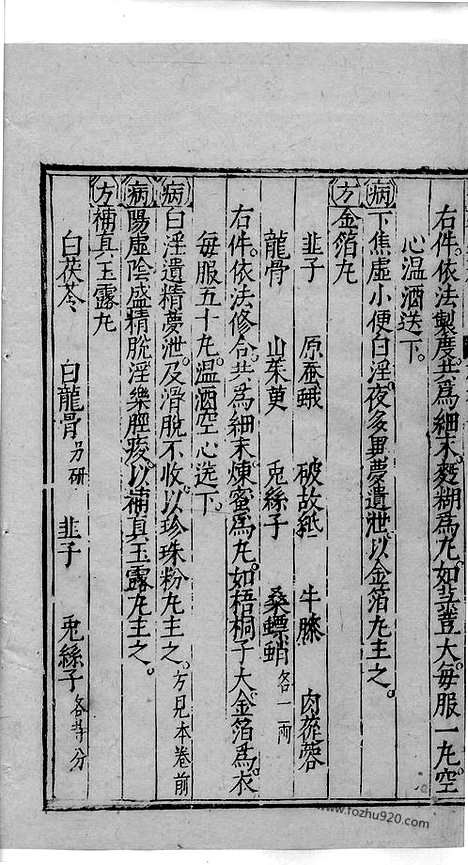 右件。依法製度。共爲細末。麪糊爲丸。如芡大。每服一丸。空
心温酒送下。
病 下焦虛小便白淫。夜多異夢遺泄。以金箔丸主之。
方 金箔丸
韭子 原蚕蛾 破故紙 牛膝 肉蓯蓉
龍骨 山茱萸 兎絲子 桑螵蛸各一兩
右件。依法修合。共爲細末。煉蜜爲丸。如梧桐子大。金箔爲衣。
每服五十丸。温酒空心送下。
病 白淫遺精夢泄。及滑脫不收。以珍珠粉丸主之。方見本卷前
病 陽虛陰盛精脫淫樂脛痠。以補真玉露丸主之。
方 補真玉露丸
白茯苓 白龍骨另研 韭子 兎絲子各等分
www.fozhu920.com